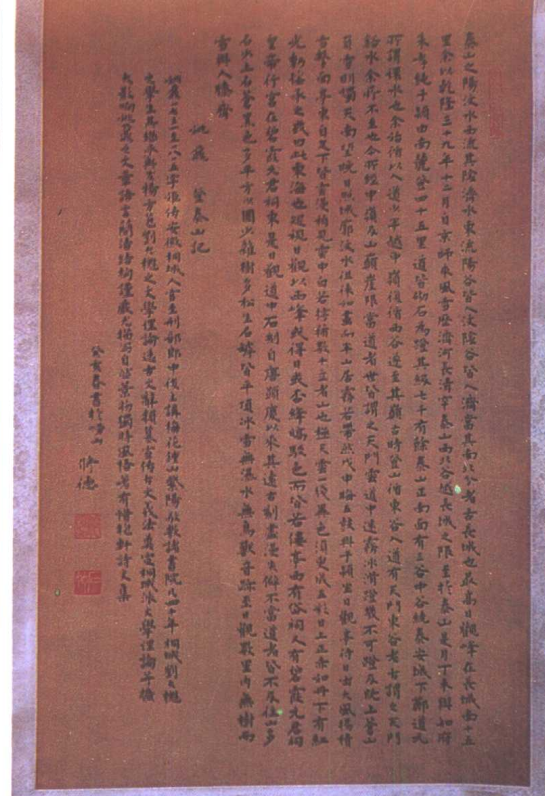 泰山之陽汶水西流其陰濟水東流陽谷皆入汶陰谷皆入濟當其南北分者古長城也最高日觀峰在長城南十五
里余以乾隆三十九年十二月自京師乘風雪歷齊河長清穿泰山西北谷越長城之限至於泰山是月丁未與知府
朱孝純子潁由南麓登四十五里道皆砌石為磴其級七千有餘泰山正南面有三谷中谷繞泰安城下酈道元
所謂環水也余始循以入道少半越中嶺復循西谷遂至其巔古時登山循東谷入道有天門東谷者古謂之天門
谿水余所不至也今所經中嶺及山巔崖限當道者世皆謂之天門雲道中迷霧冰滑磴幾不可登及既上蒼山
負雪明燭天南望晚日照城郭汶水徂徠如畫而半山居霧若帶然戊申晦五鼓與子潁坐日觀亭待日出大風揚積
雪擊面亭東自足下皆雲漫稍見雲中白若樗蒱數十立者山也極天雲一線異色須臾成五彩日上正赤如丹下有紅
光動搖承之或曰此東海也迴視日觀以西峰或得日或否絳皜駁色而皆若僂亭西有岱祠又有碧霞元君祠
皇帝行宮在碧霞元君祠東是日觀道中石刻自唐顯慶以來其遠古刻盡漫失僻不當道者皆不及往山多
石少土石蒼黑色多平方少圜少雜樹多松生石罅皆平頂冰雪無瀑水無鳥獸音跡至日觀數里內無樹而
雪與人膝齊
姚鼐 登泰山記
姚鼐一七三一至一八一五字姬傳安徽桐城人官至刑部郎中後主講梅花鍾山紫陽敬敷諸書院凡四十年桐城劉大櫆
之學生為繼承劉大櫆之文學理論選古文辭類纂宣傳古文義法為桐城派文學理論
文章語言簡潔景物獨特風格著有惜抱軒詩文集
癸亥春書於嶗山 修德